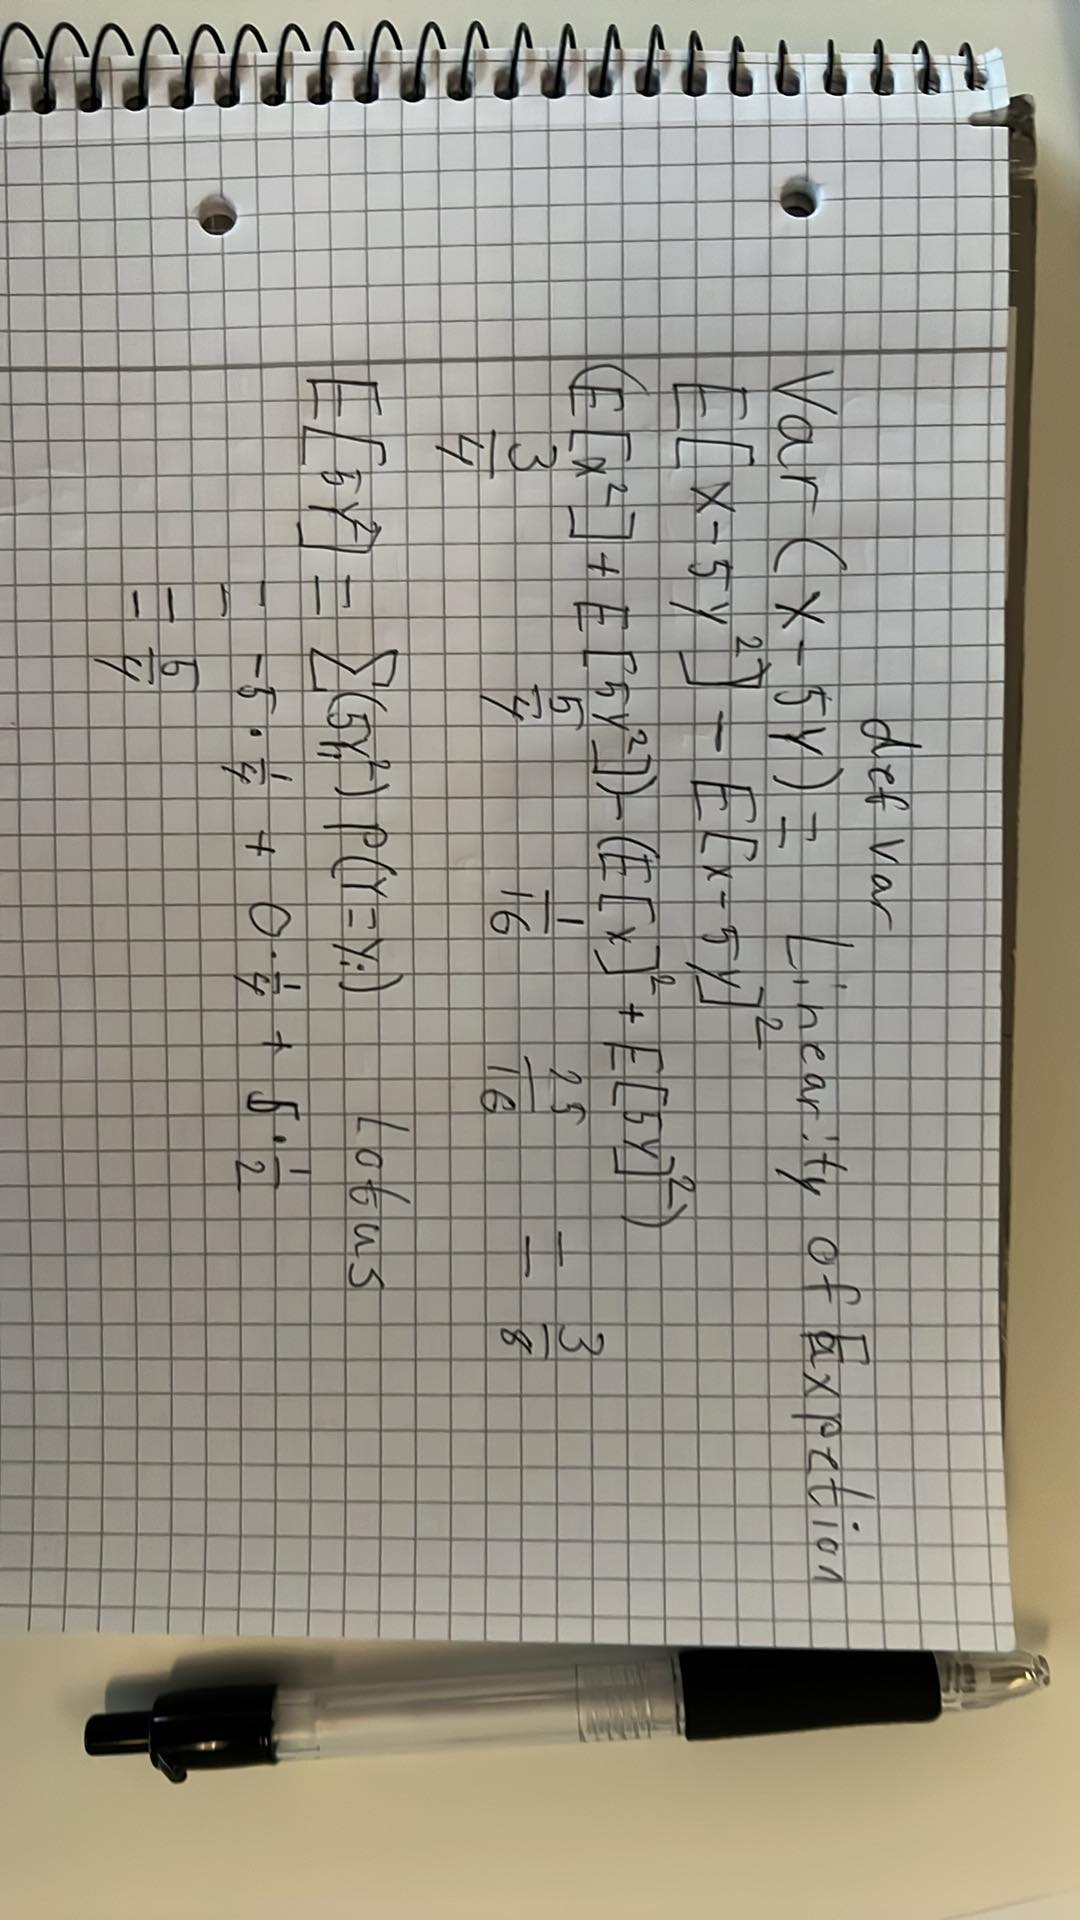 def Var
Var (x - 5y) = Linearity of Expection
E[x-5y²] - E[x-5y]²
(E[x²] + E[5y²]) - (E[x]² + E[5y]²)
3/4 5/4 1/16 25/16 = 3/8
E[5y²] = Σ(5yᵢ²) P(Y=yᵢ) Lotus
= -5·1/4 + 0·1/4 + 5·1/2
= 5/4